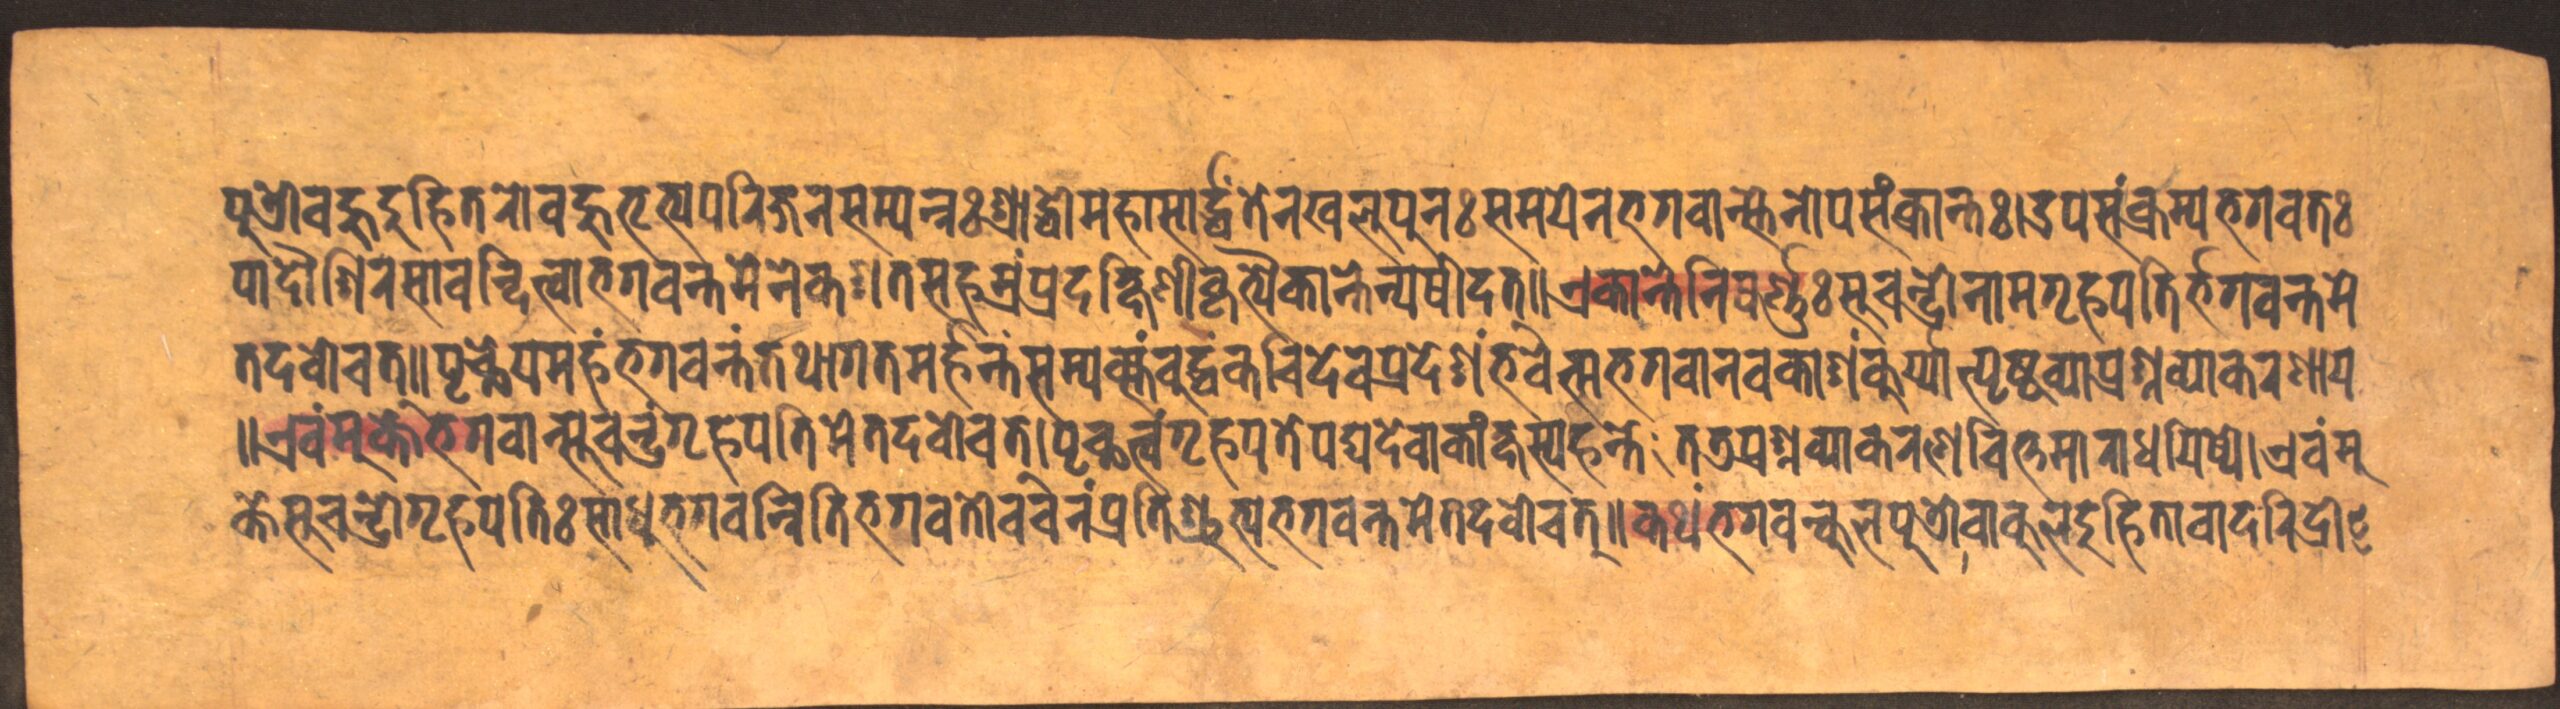 पुत्रोवहुदुहितरोवहुभृत्यपरिजनसम्पन्नःश्राद्धोमहासार्द्धंतेनखलुपुनःसमयेनभगवान्स्तेनोपसंक्रान्तः।उपसंक्रम्यभगवतः
पादौशिरसावन्दित्वाभगवन्तमेनेकशतसहस्रंप्रदक्षिणीकृत्यैकान्तेन्यषीदत्॥एकान्तेनिषर्ण्णुःसुचन्द्रोनामगृहपतिर्भगवन्तमे
तदवोचत्॥पृच्छेयमहंभगवन्तंतथागतमर्हन्तंसम्यक्संवुद्धंकचिदेवप्रदेशंभवेत्मभगवानवकाशंकुर्य्यात्पृष्ठव्याप्रश्नव्याकरणाय
॥एवंमुक्तेभगवान्सुचन्द्रंगृहपतिमेतदवोचत्।पृच्छत्वंगृहपतेपद्यदेवाकांक्षस्यहन्तेतत्रप्रश्नव्याकरणचित्तमाराधयिष्ये।एवंमु
क्तेसुचन्द्रोगृहपतिःसाधुभगवन्नितिभगवतोवचनंप्रतिश्रुत्यभगवन्तमेतदवोचत्॥कथंभगवन्कुलपुत्रोवाकुलदुहितावादरिद्रो